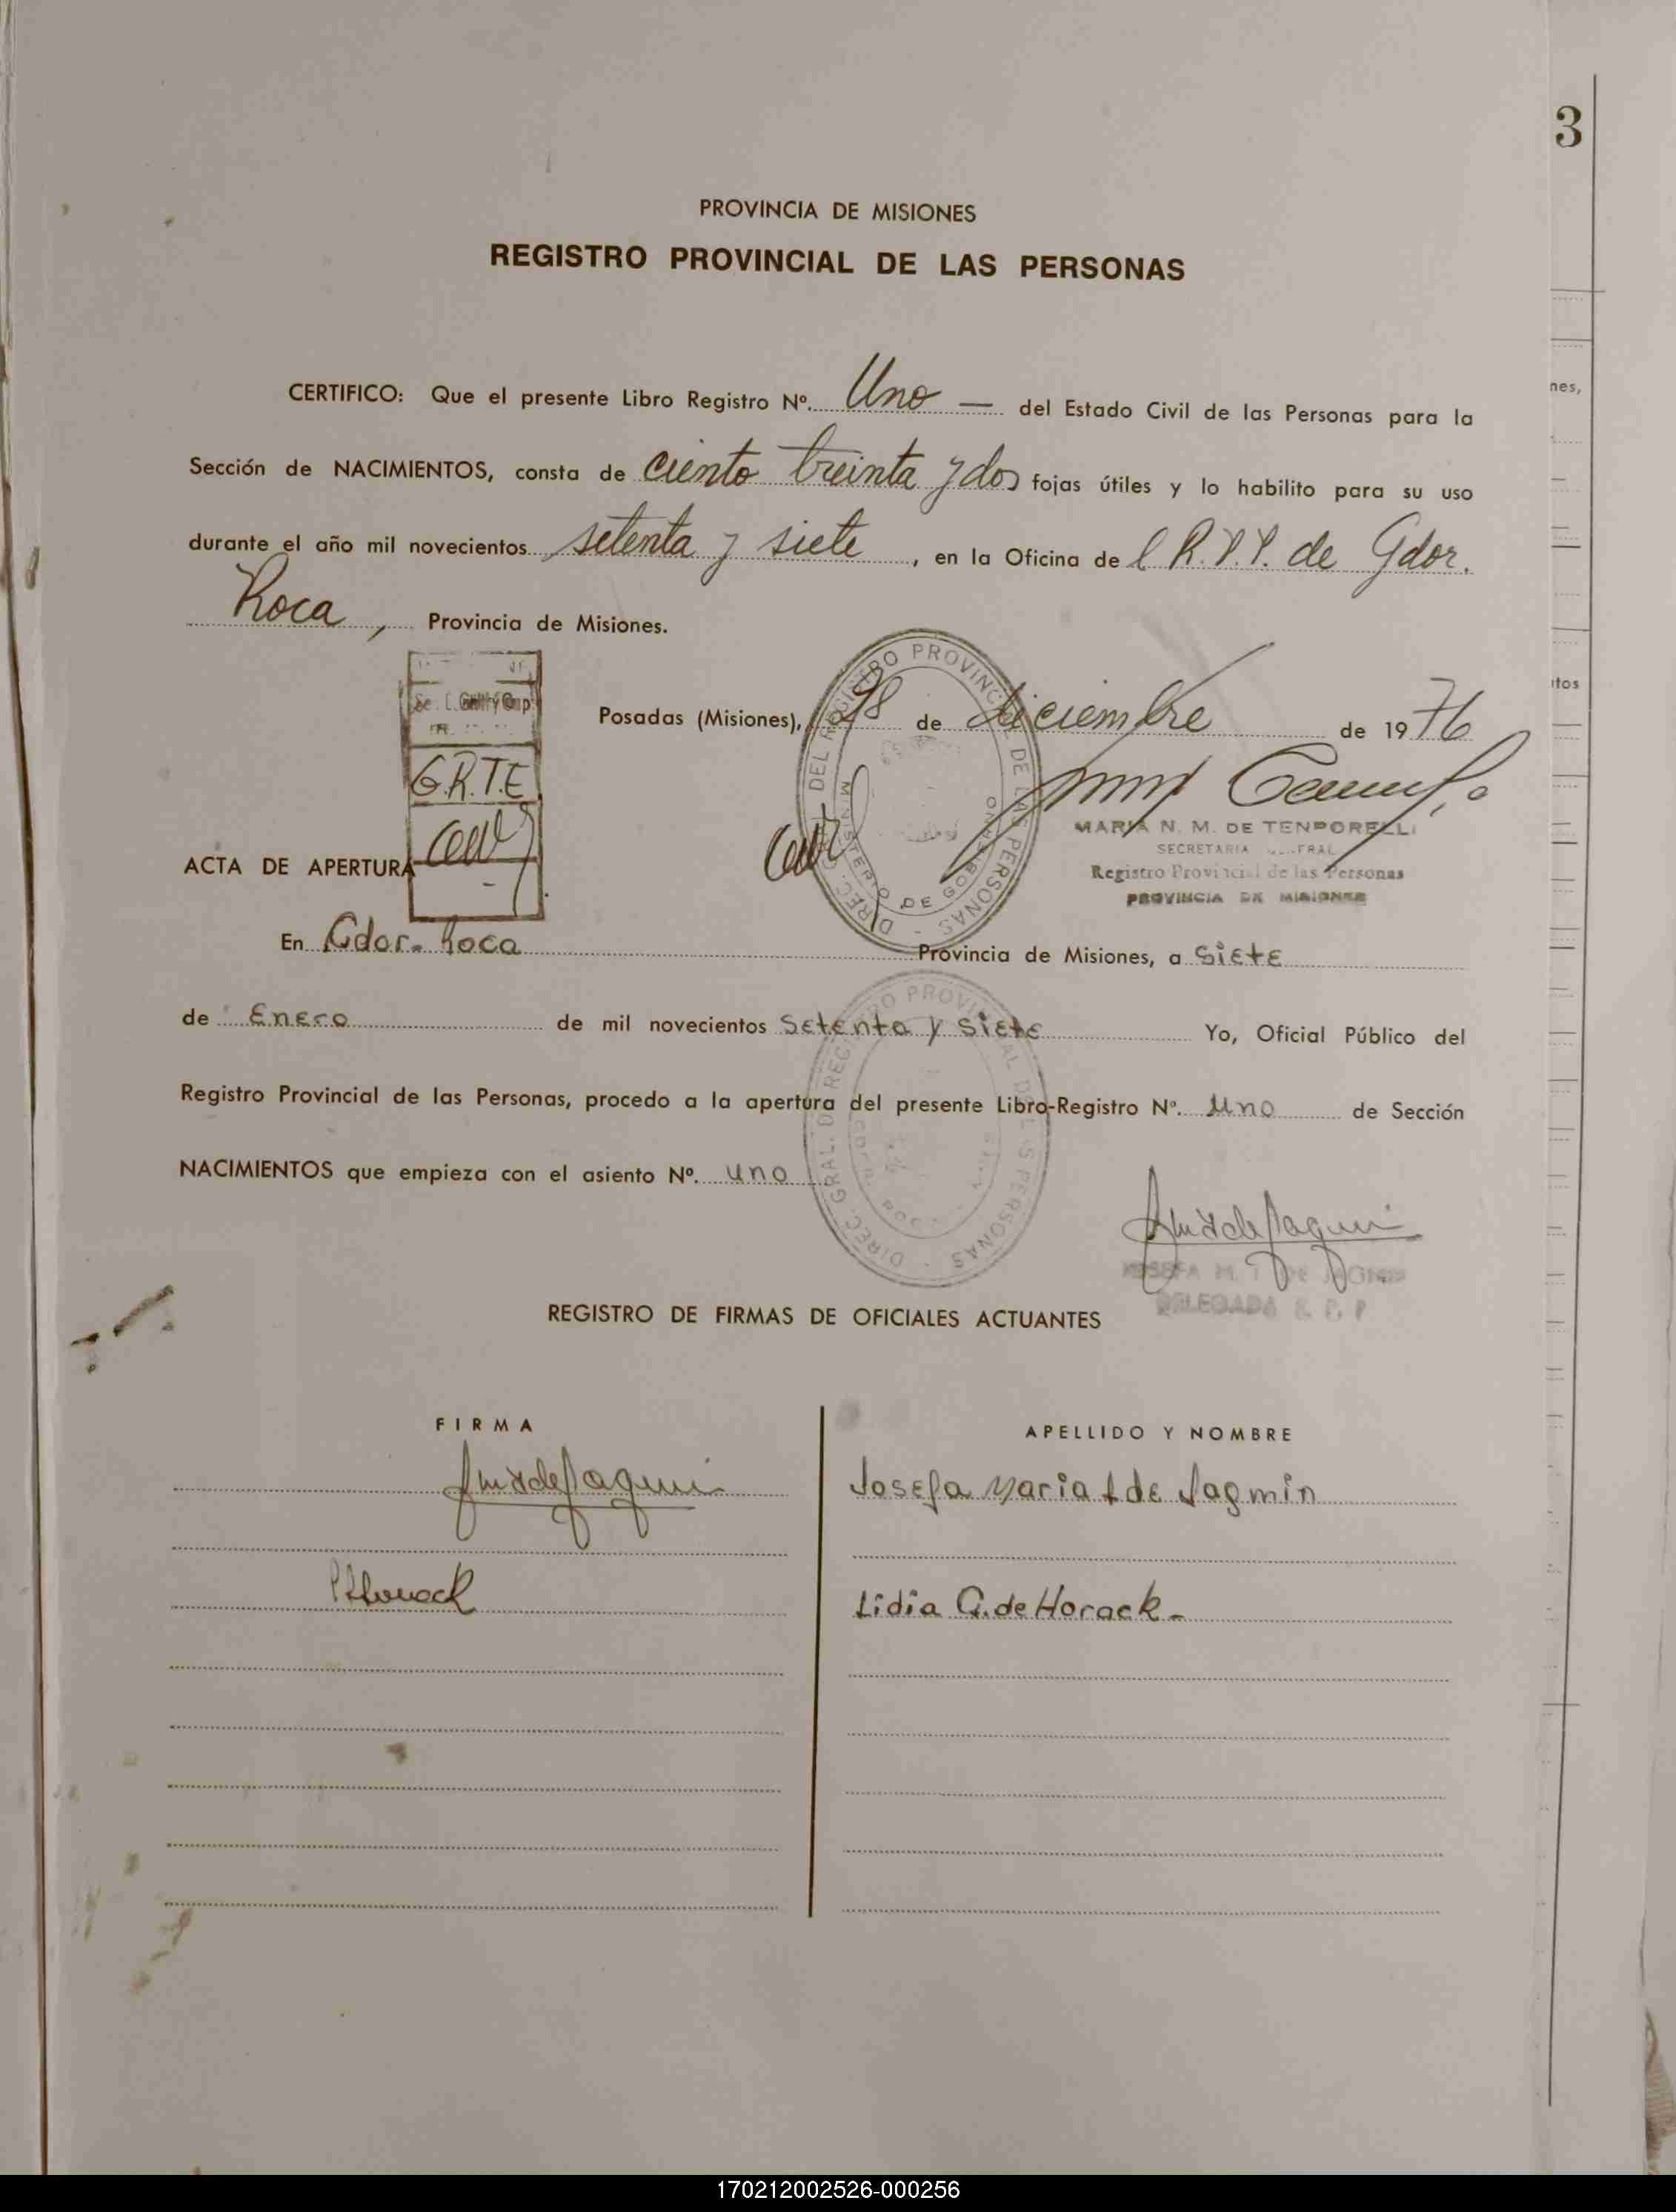 3
PROVINCIA DE MISIONES
REGISTRO PROVINCIAL DE LAS PERSONAS
CERTIFICO: Que el presente Libro Registro Nº. Uno — del Estado Civil de las Personas para la
nes,
Sección de NACIMIENTOS, consta de ciento treinta y dos fojas útiles y lo habilito para su uso
durante el año mil novecientos setenta y siete, en la Oficina de l R.P.P. de Gdor.
Roca, Provincia de Misiones.
tos
Posadas (Misiones), 28 de diciembre de 1976
G.R.T.E
DIREC. GRAL. DEL REGISTRO PROVINCIAL DE LAS PERSONAS
MINISTERIO DE GOBIERNO
MARIA N. M. DE TENPORELLI
SECRETARIA
Registro Provincial de las Personas
PROVINCIA DE MISIONES
ACTA DE APERTURA
En Gdor. Roca Provincia de Misiones, a Siete
de Enero de mil novecientos Setenta y siete Yo, Oficial Público del
Registro Provincial de las Personas, procedo a la apertura del presente Libro-Registro Nº. uno de Sección
NACIMIENTOS que empieza con el asiento Nº. uno
DIREC. GRAL. D REGISTRO PROVINCIAL DE L S PERSONAS
JOSEFA M. DE JAGMIN
DELEGADA R. P. P
REGISTRO DE FIRMAS DE OFICIALES ACTUANTES
FIRMA
APELLIDO Y NOMBRE
Josefa Maria de Jagmin
Lidia G. de Horack.
170212002526-000256